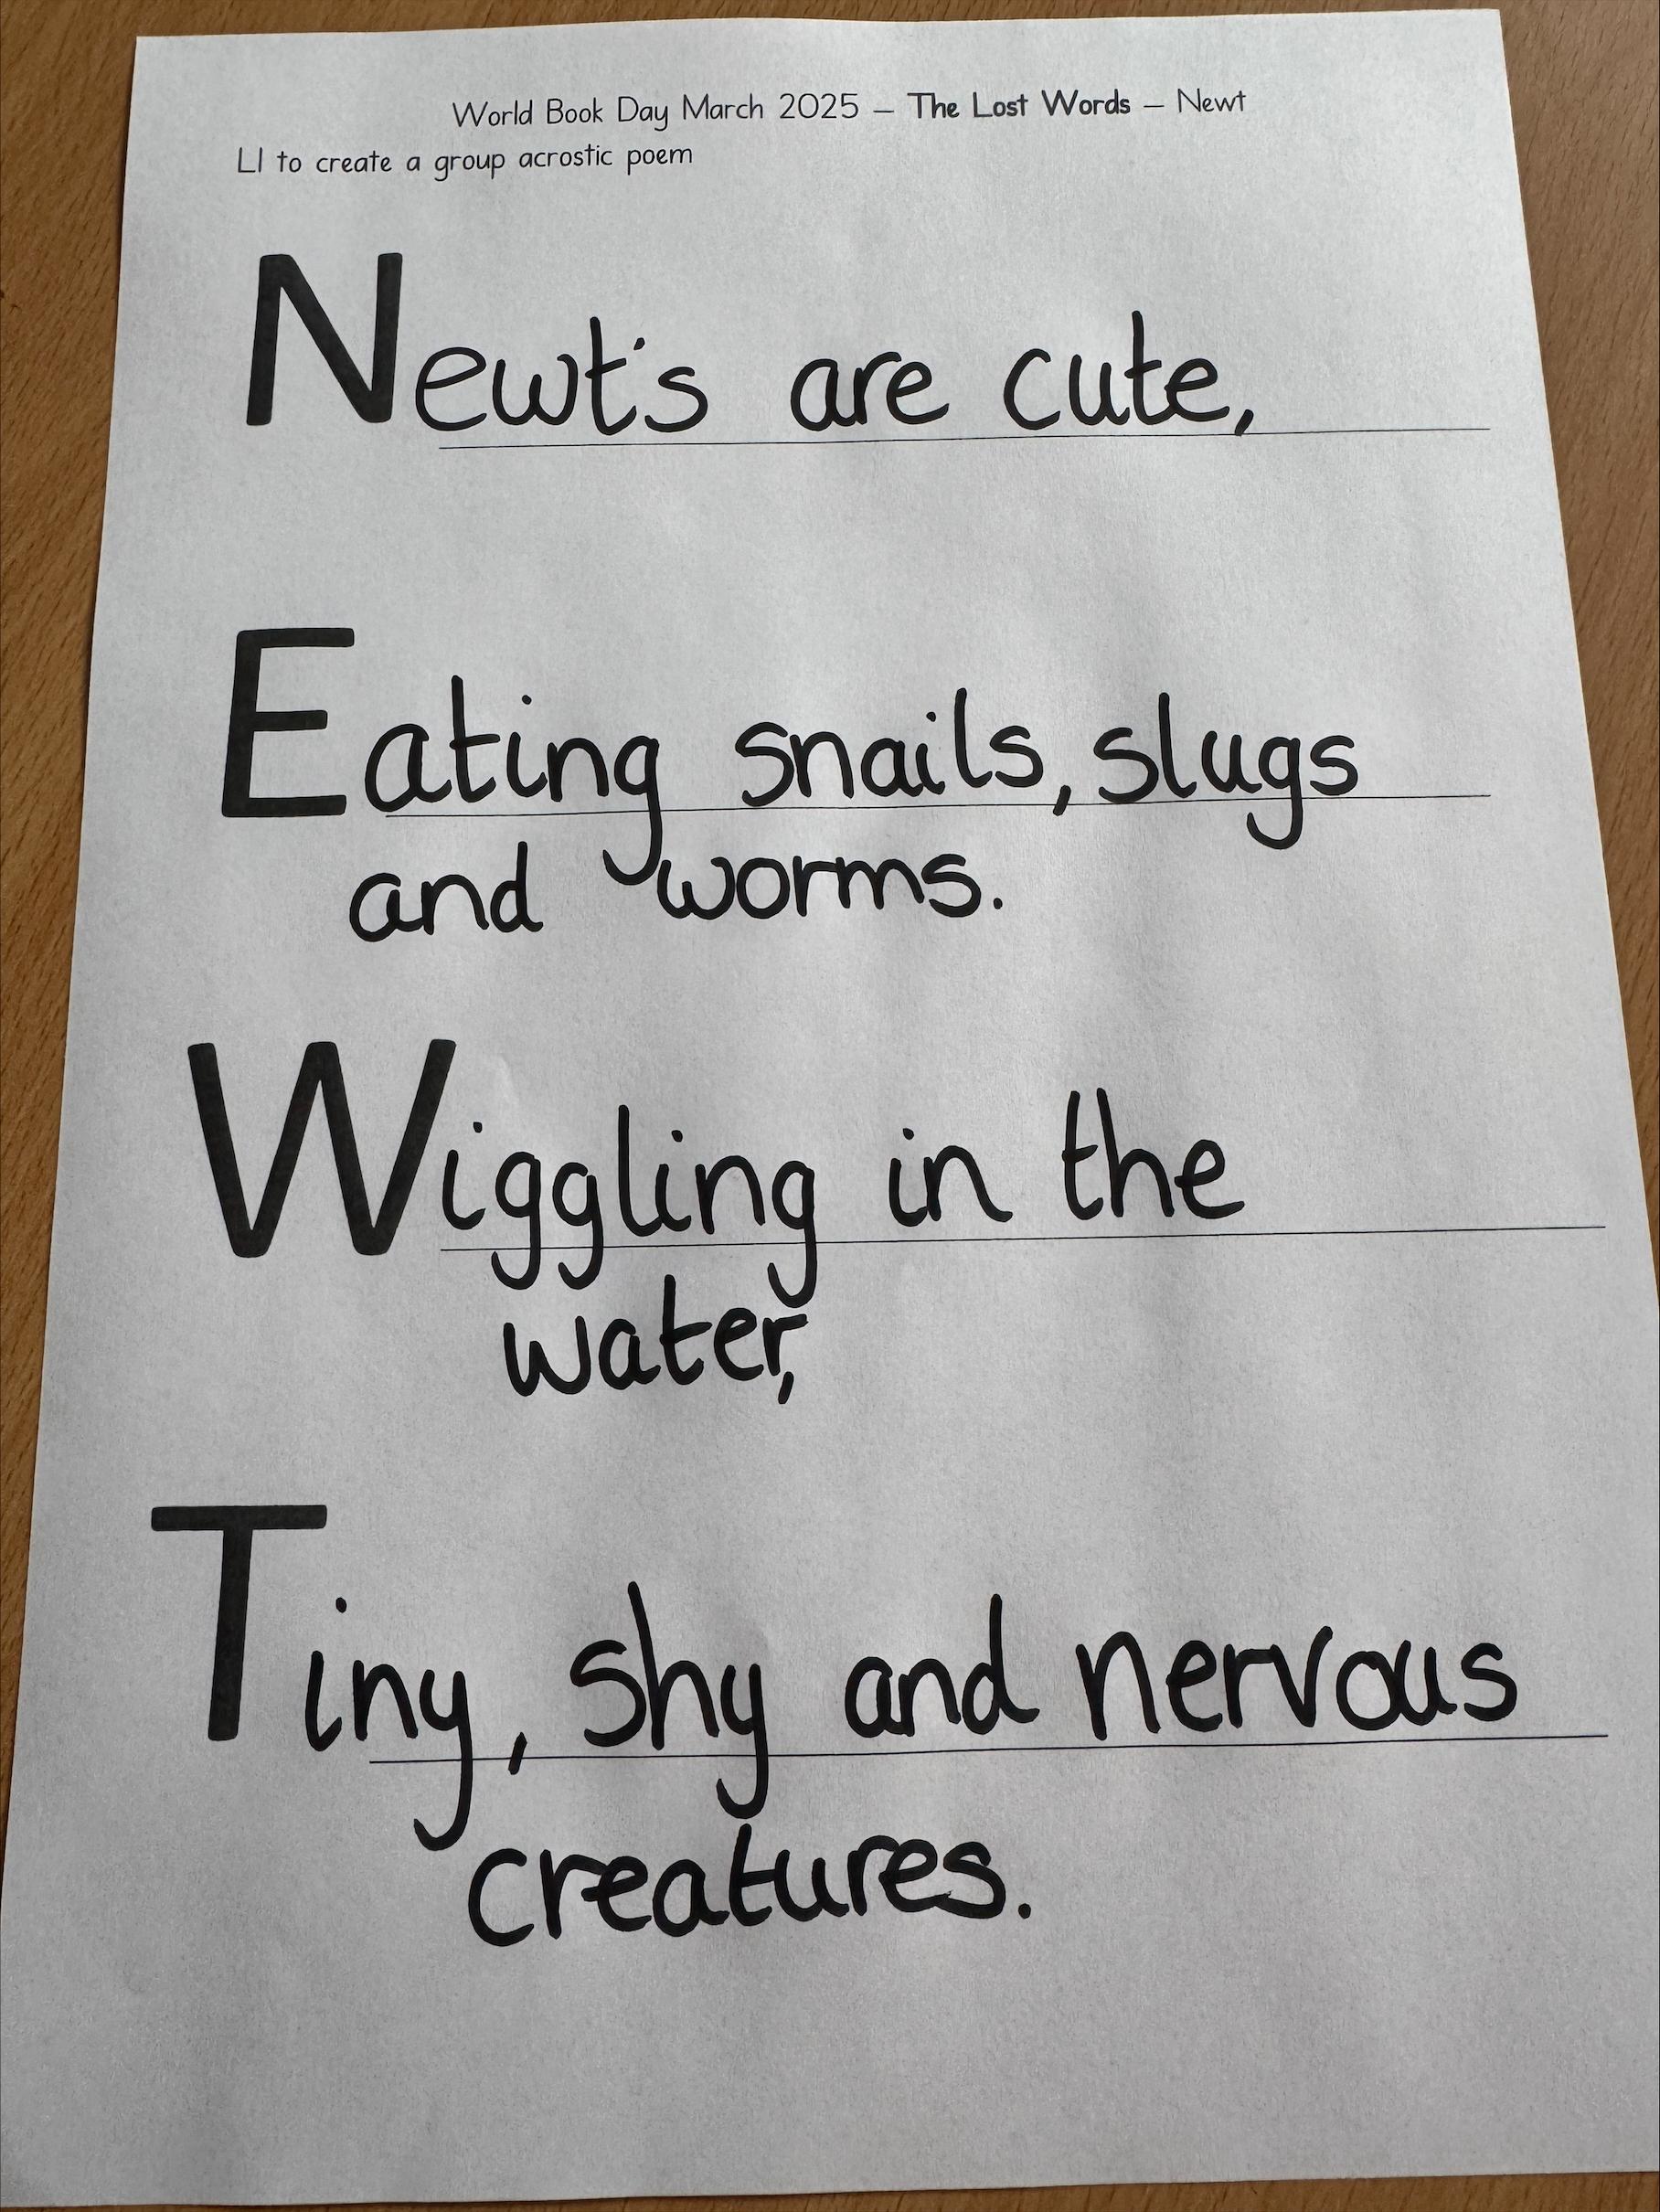 World Book Day March 2025 – The Lost Words – Newt
LI to create a group acrostic poem
Newt's are cute,
Eating snails, slugs
and worms.
Wiggling in the
water,
Tiny, shy and nervous
creatures.